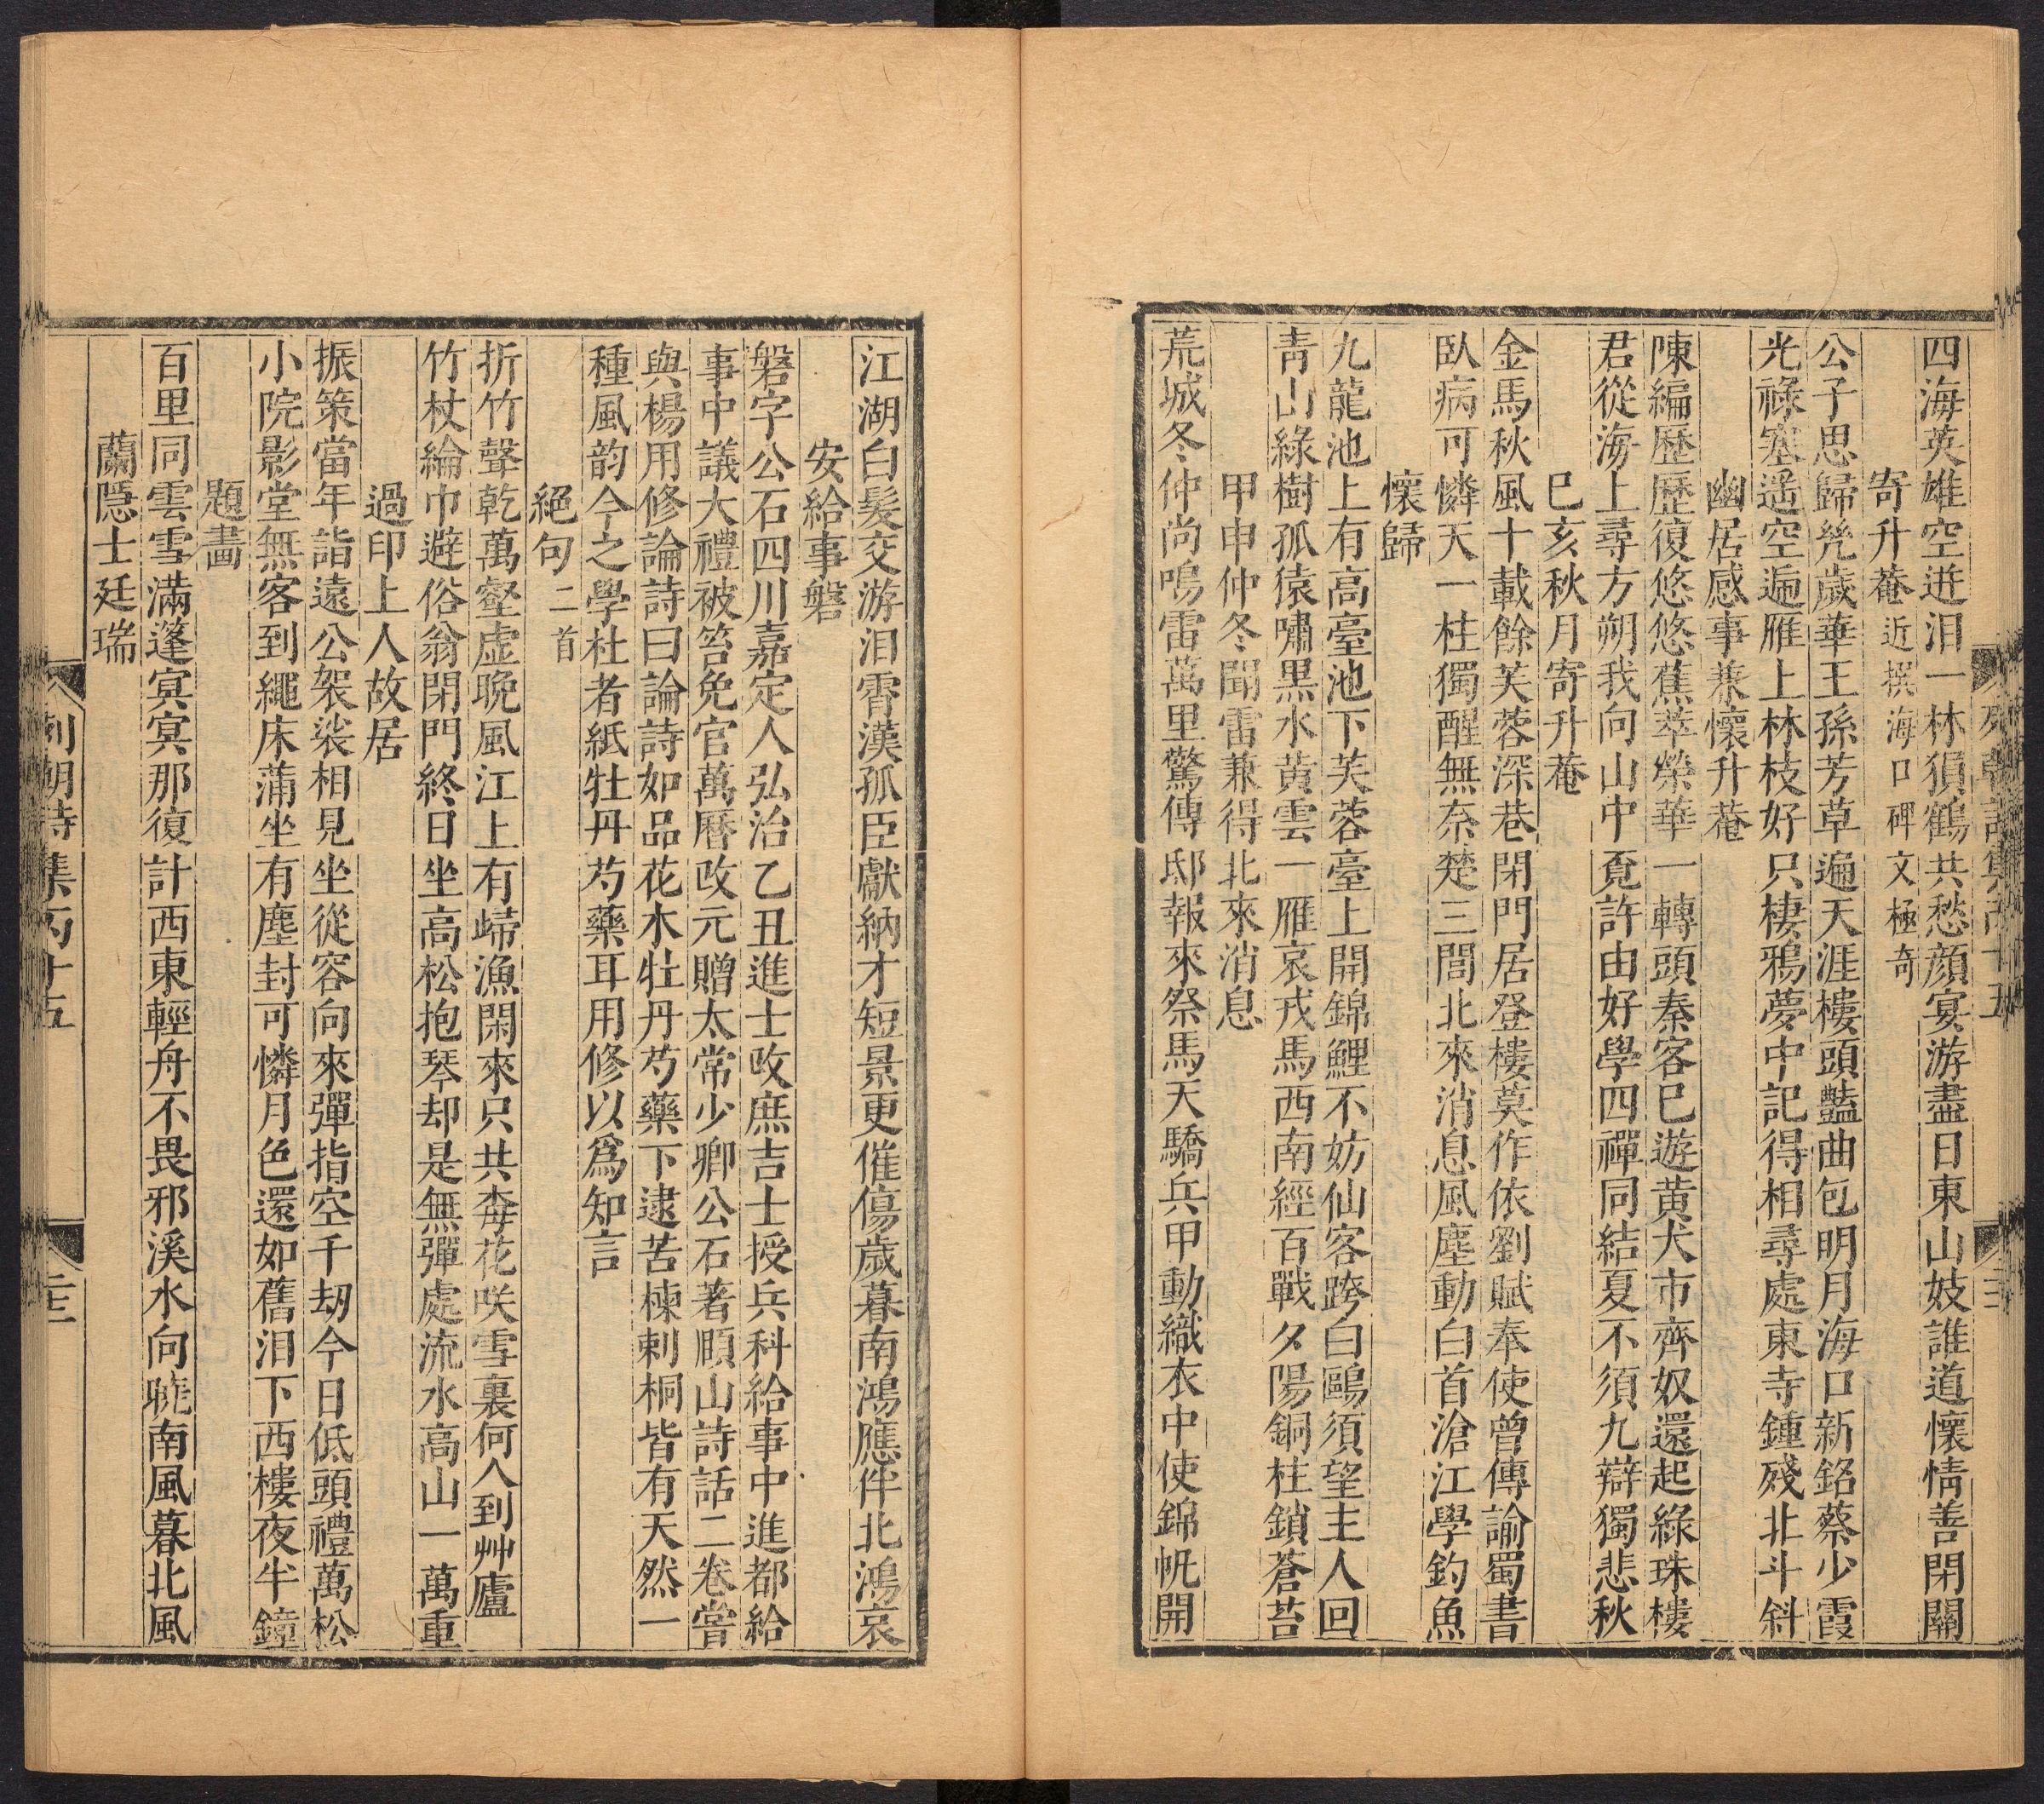 四海英雄空迸泪一林猿鶴共愁顔宴游盡日東山妓誰道懷情善閉關
寄升菴近撰海口碑文極奇
公子思歸㡬歲華王孫芳草遍天涯樓頭豔曲包明月海口新銘蔡少霞
光祿塞遥空遍雁上林枝好只棲鴉夢中記得相尋處東寺鍾殘北斗斜
幽居感事兼懷升菴
陳編歷歷復悠悠蕉萃榮華一轉頭秦客已遊黄犬市齊奴還起綠珠樓
君從海上尋方朔我向山中覔許由好學四禪同結夏不須九辯獨悲秋
巳亥秋月寄升菴
金馬秋風十載餘芙蓉深巷閉門居登樓莫作依劉賦奉使曾傳諭蜀書
臥病可憐天一柱獨醒無奈楚三閭北來消息風塵動白首滄江學釣魚
懷歸
九龍池上有高臺池下芙蓉臺上開錦鯉不妨仙客跨白鷗須望主人回
青山綠樹孤猿嘯黒水黄雲一雁哀戎馬西南經百戰夕陽銅柱鎖蒼苔
甲申仲冬聞雷兼得北來消息
荒城冬仲尚鳴雷萬里驚傳邸報來祭馬天驕兵甲動織衣中使錦帆開
江湖白髪交游泪霄漢孤臣獻納才短景更催傷歲暮南鴻應伴北鴻哀
安給事磐
磐字公石四川嘉定人弘治乙丑進士改庶吉士授兵科給事中進都給
事中議大禮被笞免官萬曆改元贈太常少卿公石著頋山詩話二卷嘗
與楊用修論詩曰論詩如品花木牡丹芍藥下逮苦楝刺桐皆有天然一
種風韵今之學杜者紙牡丹芍藥耳用修以爲知言
絕句二首
折竹聲乾萬壑虚晚風江上有歸漁閑來只共梅花咲雪裏何人到艸廬
竹杖綸巾避俗翁閉門終日坐高松抱琴却是無彈處流水高山一萬重
過印上人故居
振策當年詣遠公袈裟相見坐從容向來彈指空千刼今日低頭禮萬松
小院影堂無客到繩床蒲坐有塵封可憐月色還如舊泪下西樓夜半鐘
題畵
百里同雲雪滿蓬㝠㝠那復計西東輕舟不畏邪溪水向曉南風暮北風
蘭隱士廷瑞
列朝詩集丙十五
二十三